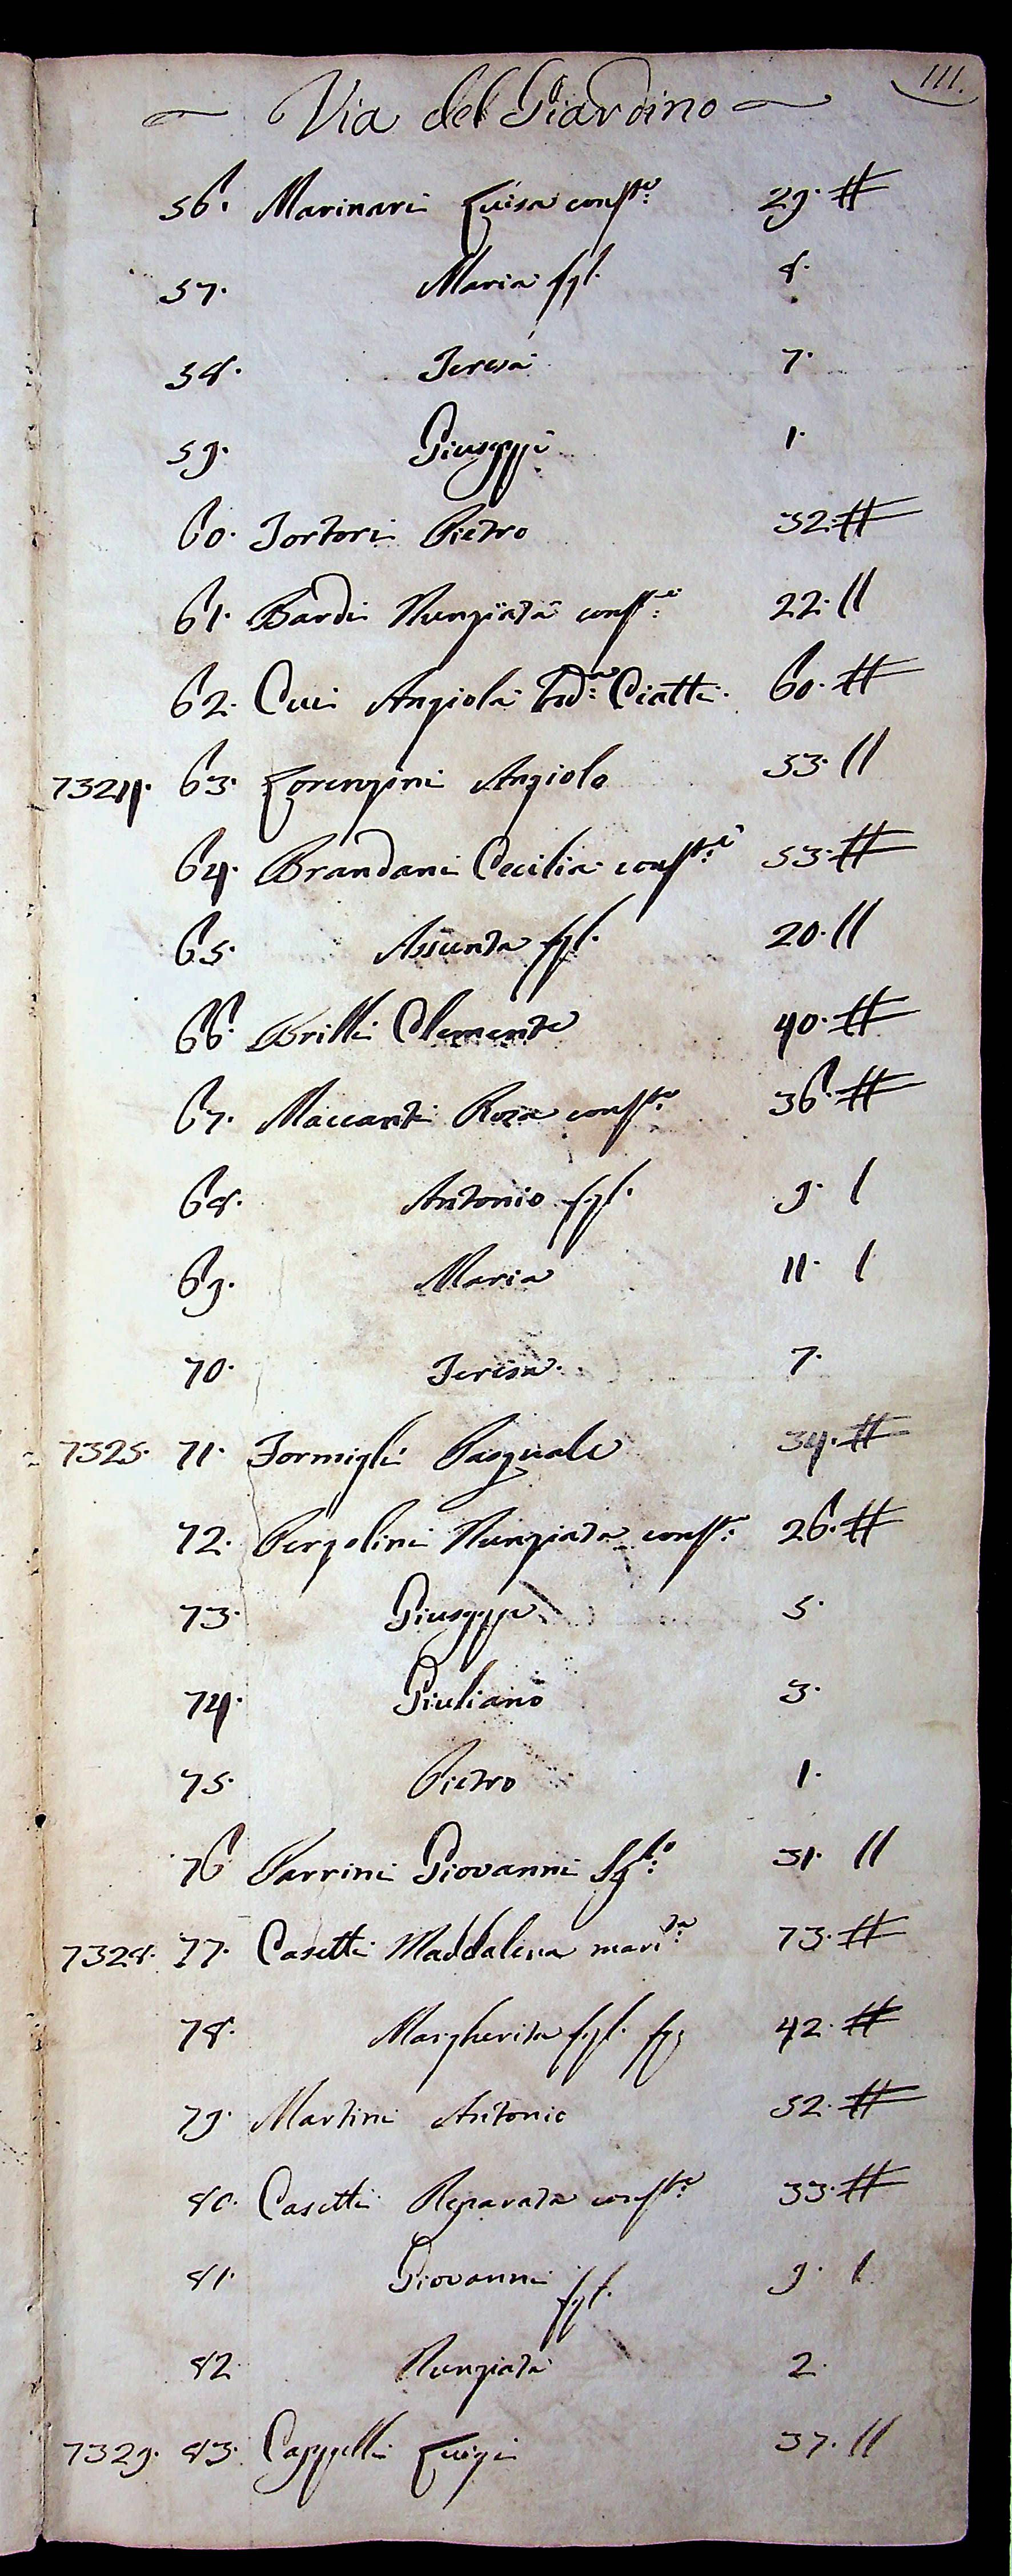 111.
Via del Giardino
56. Marinari Luisa conste: 29. #
57. Maria fgl. 8.
58. Teresa 7.
59. Giuseppe 1.
60. Tortori Pietro 32. #
61. Bardi Nunziata conste: 22. //
62. Cui Angiola Vda: Ciatti. 60. #
7324. 63. Lorenzini Angiolo 53. //
64. Brandani Cecilia conste: 53. #
65. Assunta fgl. 20. //
66. Brilli Clemente 40. #
67. Maccanti Rosa conste: 36. #
68. Antonio fgl. 9. /
69. Maria 11. /
70. Teresa. 7.
7325. 71. Formigli Pasquale 34. #
72. Pergolini Nunziata conste: 26. #
73. Giuseppe 5.
74. Giuliano 3.
75. Pietro 1.
76 Parrini Giovanni 31. //
7328. 77. Casetti Maddalena marita: 73. #
78. Margherita fgl. 42. #
79. Martini Antonio 52. #
80. Casetti Reparata conste: 33. #
81. Giovanni fgl. 9. /
82. Nunziata 2.
7329. 83. Cappelli Luigi 37. //